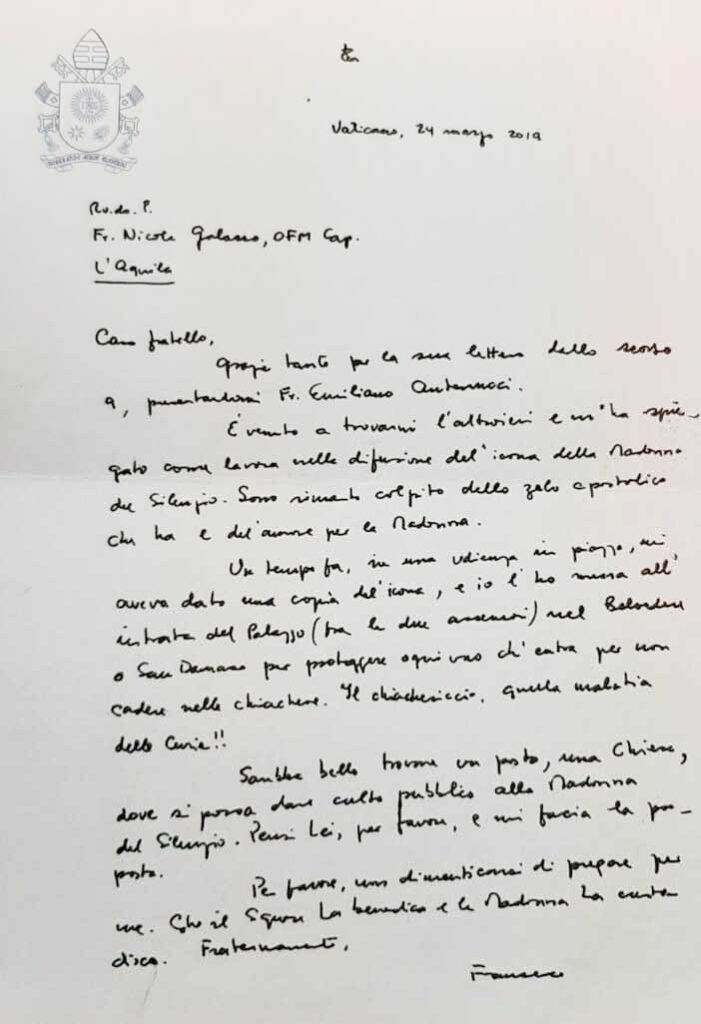 Vaticano, 24 marzo 2019
Rv.do. P.
Fr. Nicola Galasso, OFM Cap.
L'Aquila
Caro fratello,
grazie tante per la sua lettera dello scorso
9, presentandomi Fr. Emiliano Antenucci.
È venuto a trovarmi l'altroieri e m'ha spie-
gato come lavora nella difusione del'icona della Madonna
del Silenzio. Sono rimasto colpito dello zelo apostolico
che ha e del'amore per la Madonna.
Un tempo fa, in una udienza in piazza, mi
aveva dato una copia del'icona, e io l'ho messa all'
intrata del Palazzo (tra le due ascensori) nel Belvedere
o San Damaso per proteggere ogni uno ch'entra per non
cadere nelle chiachere. Il chiachericcio, quella malatia
della Curia!!
Sarebbe bello trovare un posto, una Chiesa,
dove si possa dare culto pubblico alla Madonna
del Silenzio. Pensi Lei, per favore, e mi faccia la pro-
posta.
Per favore, non dimenticarsi di pregare per
me. Che il Signore La benedica e la Madonna La custo
disca. Fraternamente,
Francesco